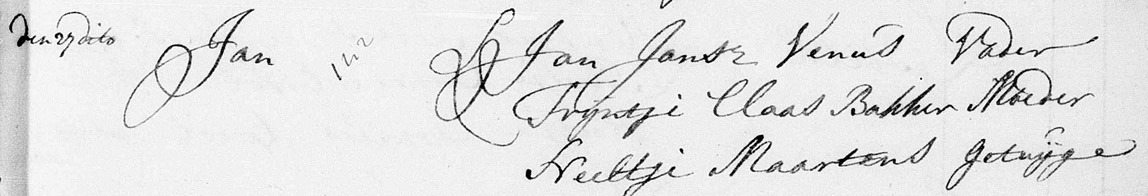 den 27 dito Jan 142 Jan Jansz Venus Vader
Tryntje Claas Bakker Moeder
Neeltje Maartens getuijge